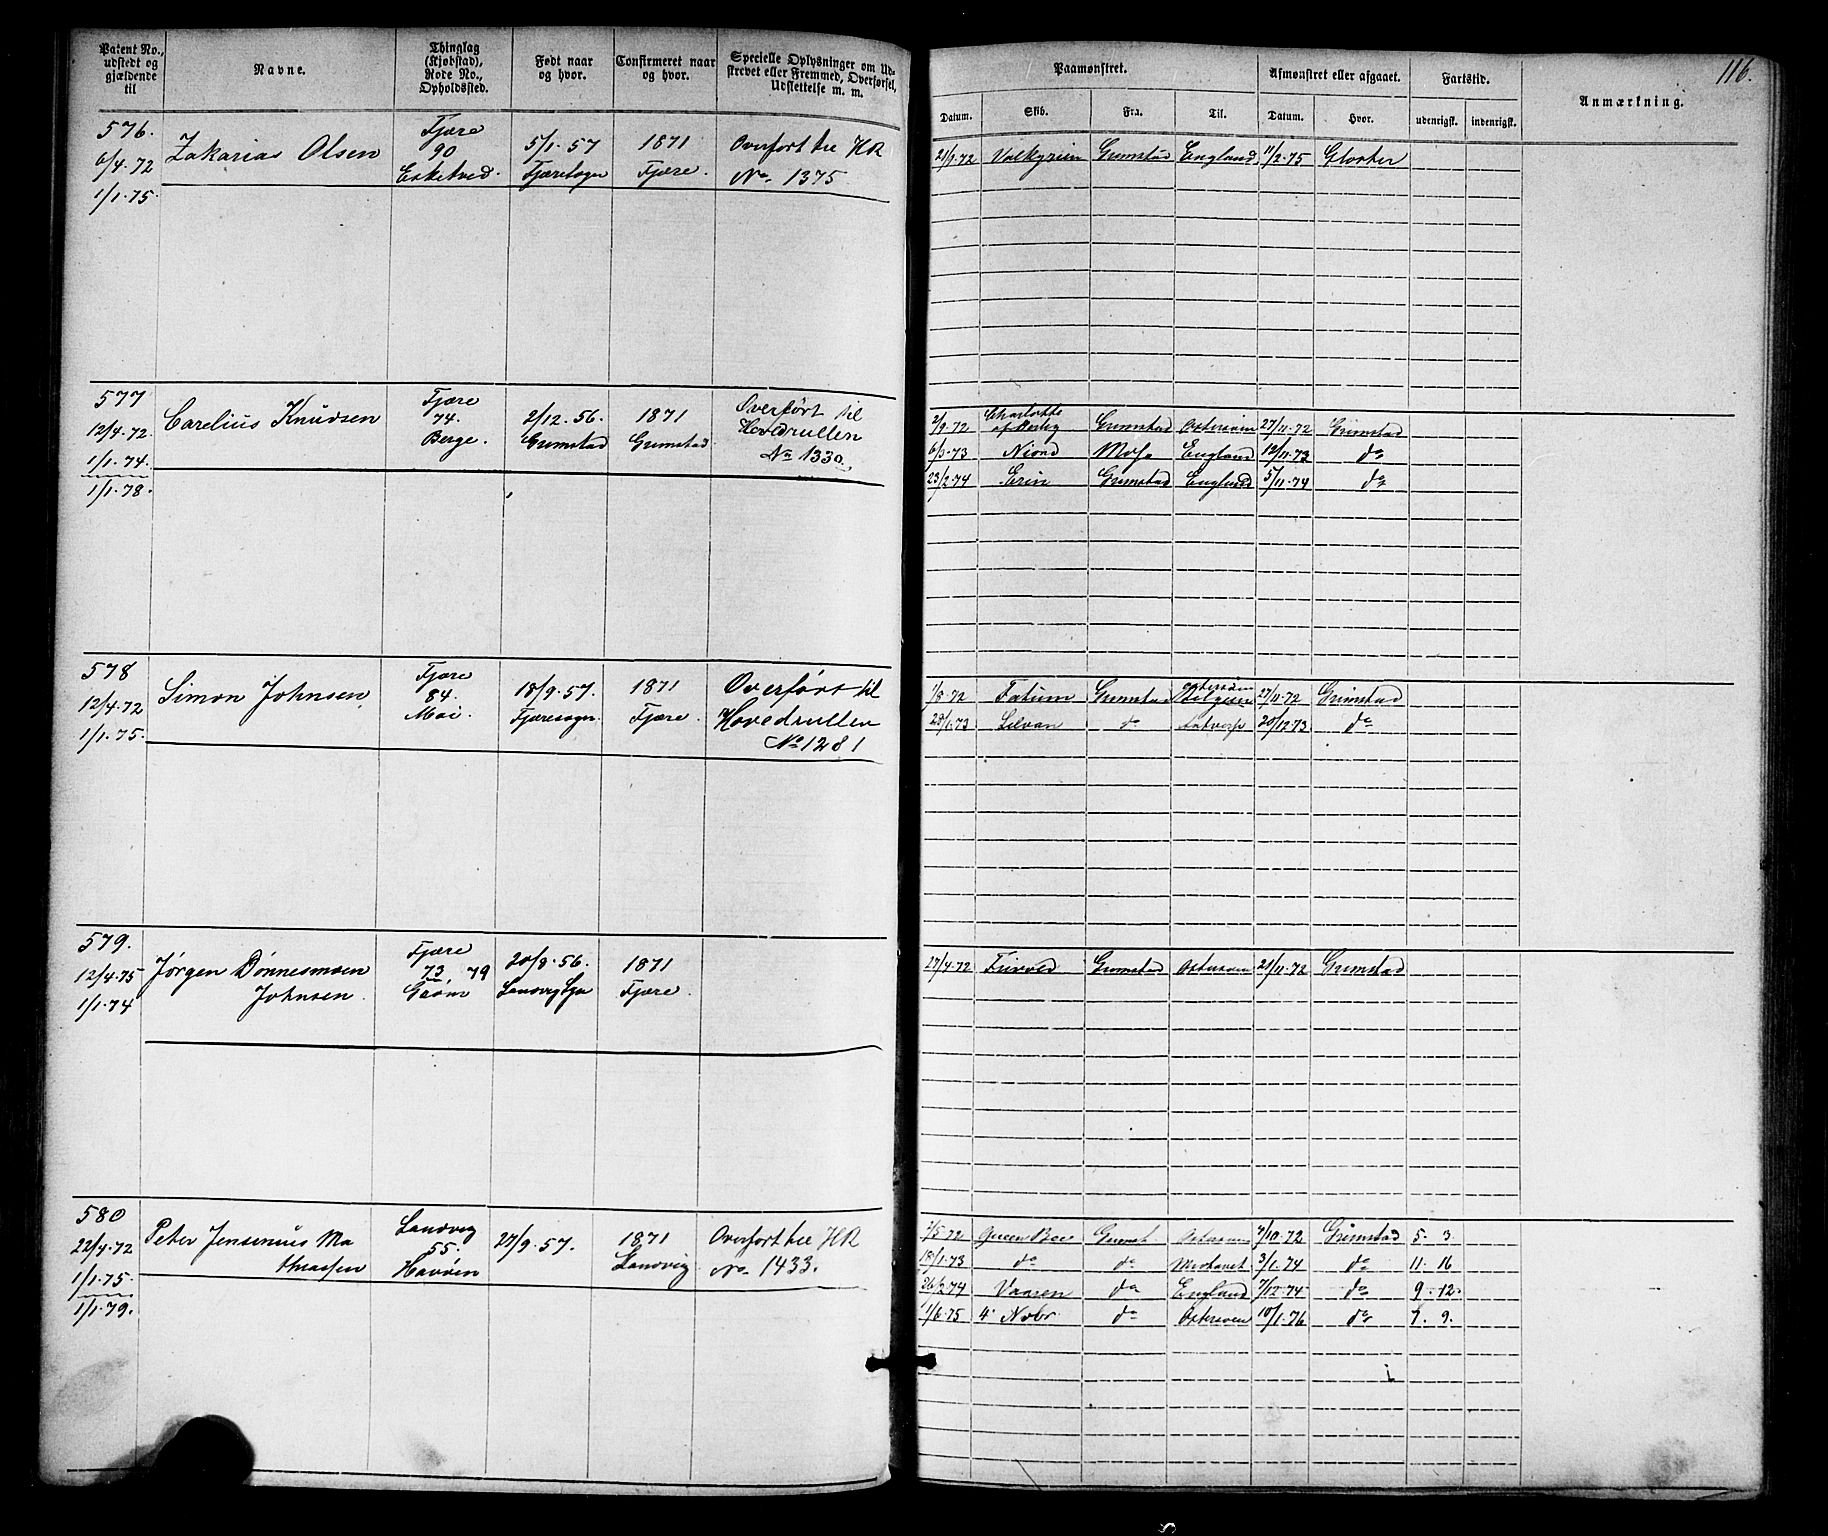 Patent No., udstedt og gjældende til
Navne.
Thinglag (Kjøbstad), Rode No., Opholdssted.
Født naar og hvor.
Confirmeret naar og hvor.
Specielle Oplysninger om Udskrevet eller Fremmed, Overførsel, Udslettelse m. m.
116.
Paamønstret.
Afmønstret eller afgaaet.
Fartstid.
Anmærkning.
Datum.
Skib.
Fra.
Til.
Datum.
Hvor.
udenrigsk.
indenrigsk.
576.
6/4.72
1/1.75.
Zakarias Olsen
Fjære
90
Esketved.
5/1.57
Fjæresogn
1871
Fjære.
Overført til HR
No. 1375
21/9.72 Valkyrien Grimstad England 11/2.75 Gloster
577
12/4.72.
1/1.74.
1/1.78.
Carelius Knudsen
Fjære
74.
Berge.
2/12.56.
Grimstad
1871
Grimstad.
Overført til
Hovedrullen
No 1330.
2/9.72 Charlotte Grimstad Østersøen 27/11.72 Grimstad
6/3.73 Niord Moss England 12/11.73 do
23/2.74 Erin Grimstad England 5/11.74 do
578
12/4.72
1/1.75.
Simon Johnsen.
Fjære
84.
Moi.
18/9.57.
Fjæresogn.
1871
Fjære.
Overført til
Hovedrullen
No 1281
1/8.72 Fatum Grimstad Østersøen Belgien 27/11.72 Grimstad
28/1.73 Silvan do Antverp 20/12.73 do
579.
12/4.75
1/1.74
Jørgen Dønnesmoen
Johnsen.
Fjære
73 79
Grøm
20/8.56.
Landvig Sgn
1871
Fjære.
27/4.72 Grimstad Østersøen 21/11.72 Grimstad
580
22/4.72
1/1.75.
1/1.79.
Peter Jensenius Ma
thiassen
Landvig
55.
Havøen
27/9.57.
1871
Landvig
Overført til HR
No. 1433.
7/5.72 Queen Bee Grimst Østersøen 7/10.72 Grimstad 5. 3.
18/1.73 do do Middhavet 3/1.74 do 11. 16
26/2.74 Vaaren do England 7/12.74 do 9. 12.
1/6.75 4 Novbr do Østersøen 10/1.76 do 7. 9.